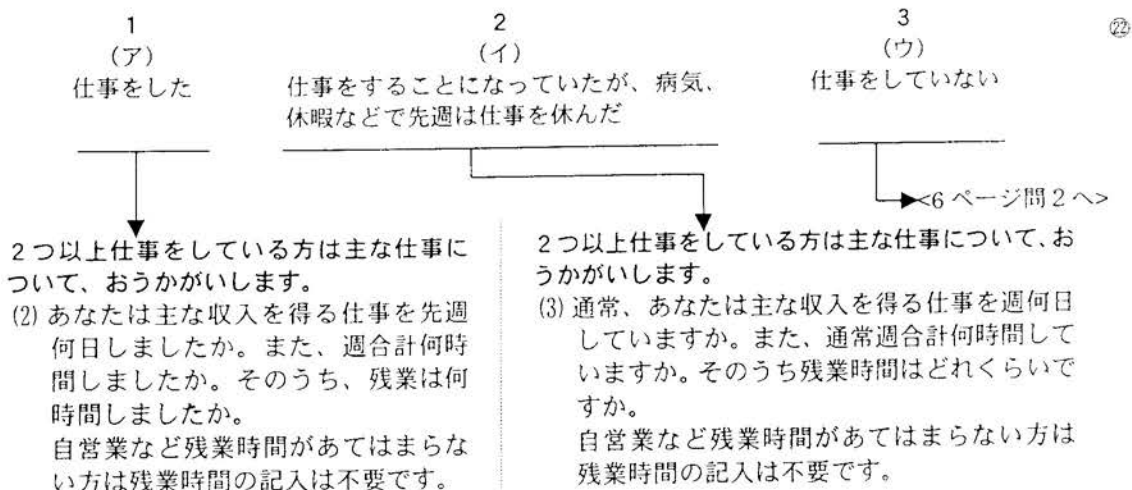 1
(ア)
仕事をした
2
(イ)
仕事をすることになっていたが、病気、
休暇などで先週は仕事を休んだ
3
(ウ)
仕事をしていない
㉒
<6ページ問2へ>
2つ以上仕事をしている方は主な仕事に
ついて、おうかがいします。
(2) あなたは主な収入を得る仕事を先週
何日しましたか。また、週合計何時
間しましたか。そのうち、残業は何
時間しましたか。
自営業など残業時間があてはまらな
い方は残業時間の記入は不要です。
2つ以上仕事をしている方は主な仕事について、お
うかがいします。
(3) 通常、あなたは主な収入を得る仕事を週何日
していますか。また、通常週合計何時間して
いますか。そのうち残業時間はどれくらいで
すか。
自営業など残業時間があてはまらない方は
残業時間の記入は不要です。